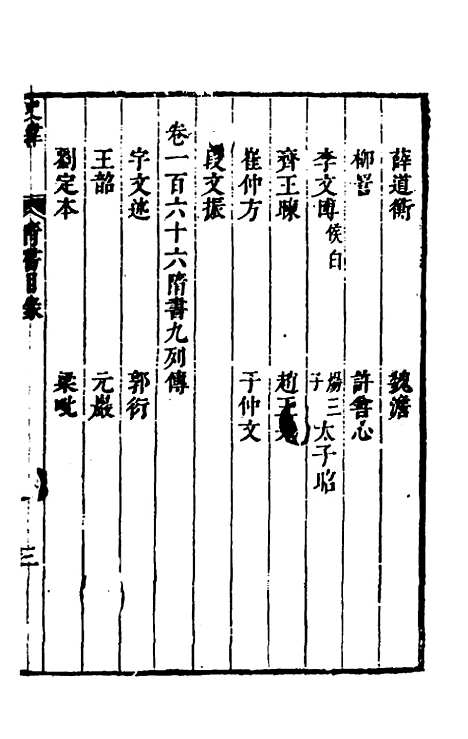 薛道衡　魏澹
柳䛒　許善心
李文博侯白　煬三太子昭子
齊王暕　趙王杲
崔仲方　于仲文
段文振
卷一百六十六隋書九列傳
宇文述　郭衍
王韶　元巖
劉定本　梁毗
隋書目錄
三